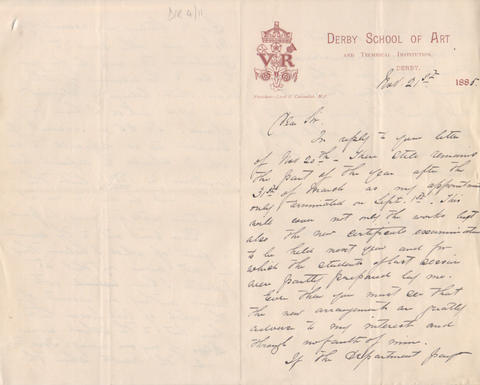 DIR 4/11
V R
DERBY SCHOOL OF ART
AND TECHNICAL INSTITUTION,
DERBY.
President—Lord G Cavendish, M.P.
Nov 21st 1885.
Dear Sir
In reply to your letter
of Nov 20th - There still remains
the part of the year after the
31st of March as my appointment
only terminated on Sept. 1st. This
will cover not only the works but
also the new certificate examinations
to be held next year and for
which the students of last session
were partly prepared by me.
Even then you must see that
the new arrangements are greatly
adverse to my interest and
through no fault of mine.
If the Department